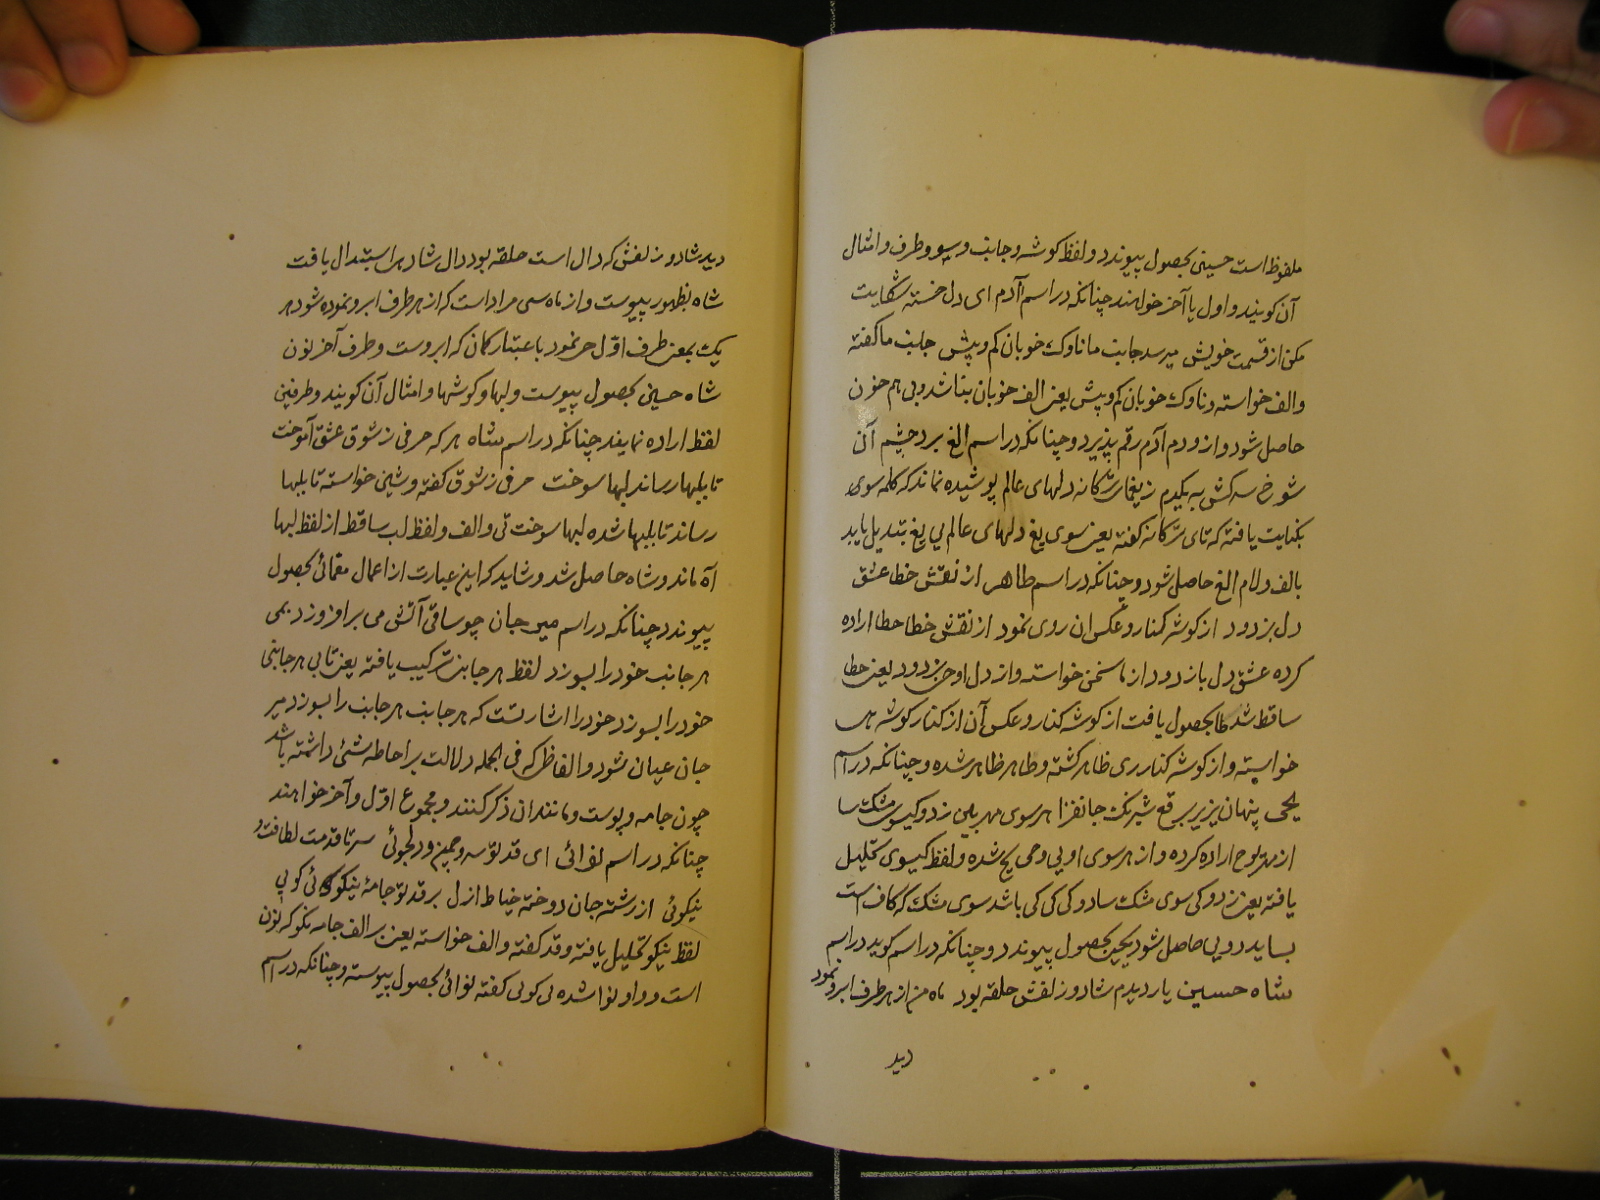 ملفوظ است حسینی بحصول پیوندد و لفظ کوشه و جانب و سو و طرف و امثال
آن کویند و اول یا آخر خواهند چنانکه در اسم آدم ای دل خسته شکایت
مکن از قسمت خویش میرسد جانب ما ناوک خوبان کم و بیش جانب ما کفته
و الف خواسته و ناوک خوبان کم و بیش یعنی الف خوبان بنا شد و بی هم خون
حاصل شود و از و دم آدم رقم پذیرد و چنانکه در اسم الغ برد چشم آن
شوخ سرکش به یکدم ز یغمای ترکانه دلهای عالم پوشیده نماند که کلمه سوی
بکنایت یافته که تای ترکانه کفته یعنی سوی یغ دلهای عالم بی یغ تبدیل یابد
بالف و لام الغ حاصل شود و چنانکه در اسم طاهر از نقش خطا عشق
دل بزدود از کوشه کنار و عکس ان روی نمود از نقش خطا حطا اراده
کرده عشق دل باز دود از ما سخن خواسته و از دل او حی بزدود یعنی حطا
ساقط شد طا بحصول یافت از کوشه کنار و عکس آن از کنار کوشه هی
خواسته و از کوشه کنار ری ظاهر کشته و طاهر ظاهر شده و چنانکه در اسم
یحیی پنهان بزیر برقع شبرنک جانفزا هر سوی مه زد و کیسوی مشک سا
از مه لوح اراده کرده و از هر سوی او یی و حی یح شده و لفظ کیسوی تحلیل
یافته یعنی زد و کی سوی مشک سا دو کی کی کی باشد سوی مشک که کاف است
بساید دو یی حاصل شود یحیی بحصول پیوندد و چنانکه در اسم کوید در اسم
شاه حسین یار دیدم شاد و زلفش حلقه بود ماه من از هر طرف ابرو نمود
دید
دید شاد و زلفش که دال است حلقه بود دال شاد بها استبدال یافت
شاه بظهور پیوست و از ماه سی مراد است که از هر طرف ابرو نموده شود هر
یک بمعنی طرف اول حی نمود باعتبار کمان که ابروست و طرف آخر نون
شاه حسین بحصول پیوست و لبها و کوشها و امثال آن کویند و طرفین
لفظ اراده نمایند چنانکه در اسم شاه هر که حرفی ز شوق عشق آموخت
تا بلبها رساند لبها سوخت حرفی ز شوق کفته و شین خواسته تا بلبها
رساند تا بلبها شده لبها سوخت تی و الف و لفظ لب ساقط از لفظ لبها
آه ماند و شاه حاصل شد و شاید که این عبارت از اعمال معمائی بحصول
پیوندد چنانکه در اسم میر جان چو ساقی آتش می بر افروزد بمی
هر جانب خود را بسوزد لفظ هر جانب ترکیب یافته یعنی تا بی هر جانبی
خود را بسوزد خود را اشارتست که هر جانب هر جانب را بسوزد میر
جان عیان شود و الفاظی که فی الجمله دلالت بر احاطه شئ داشته باشد
چون جامه و پوست و مانند ان ذکر کنند و مجموع اول و آخر خواهند
چنانکه در اسم لوائی ای قد تو سر و چمن دلجوئی سر تا قدمت لطافت و
نیکوئی از رشته جان دوخته خیاط ازل بر قد تو جامهٔ نیکو کوئی کویی
لفظ نیکو تحلیل یافته و قد کفته و الف خواسته یعنی بر الف جامه نکو که نون
است و واو نوا شده نی کوئی کفته نوائی بحصول پیوسته و چنانکه در اسم